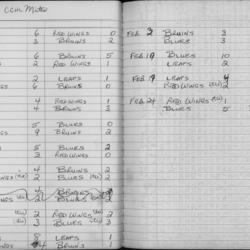 CCHL Mites
6 RED WINGS 0
3 BRUINS 2
6 BRUINS 5
2 RED WINGS 1
2 LEAFS 1
6 BRUINS 0
4 RED WINGS 1
4 BRUINS 3
5 BLUES 0
9 BRUINS 2
5 BLUES 2
3 RED WINGS 0
4 BRUINS 2
2 BLUES 2
4 BRUINS
2 BLUES
2 RED WINGS 2
2 BLUES 3
8 LEAFS 1
4 BRUINS 1
FEB 2 BRUINS 3
BLUES 3
FEB 10 BLUES 10
LEAFS 2
FEB 17 LEAFS 4
RED WINGS 2
FEB 24 RED WINGS 1
BLUES 5